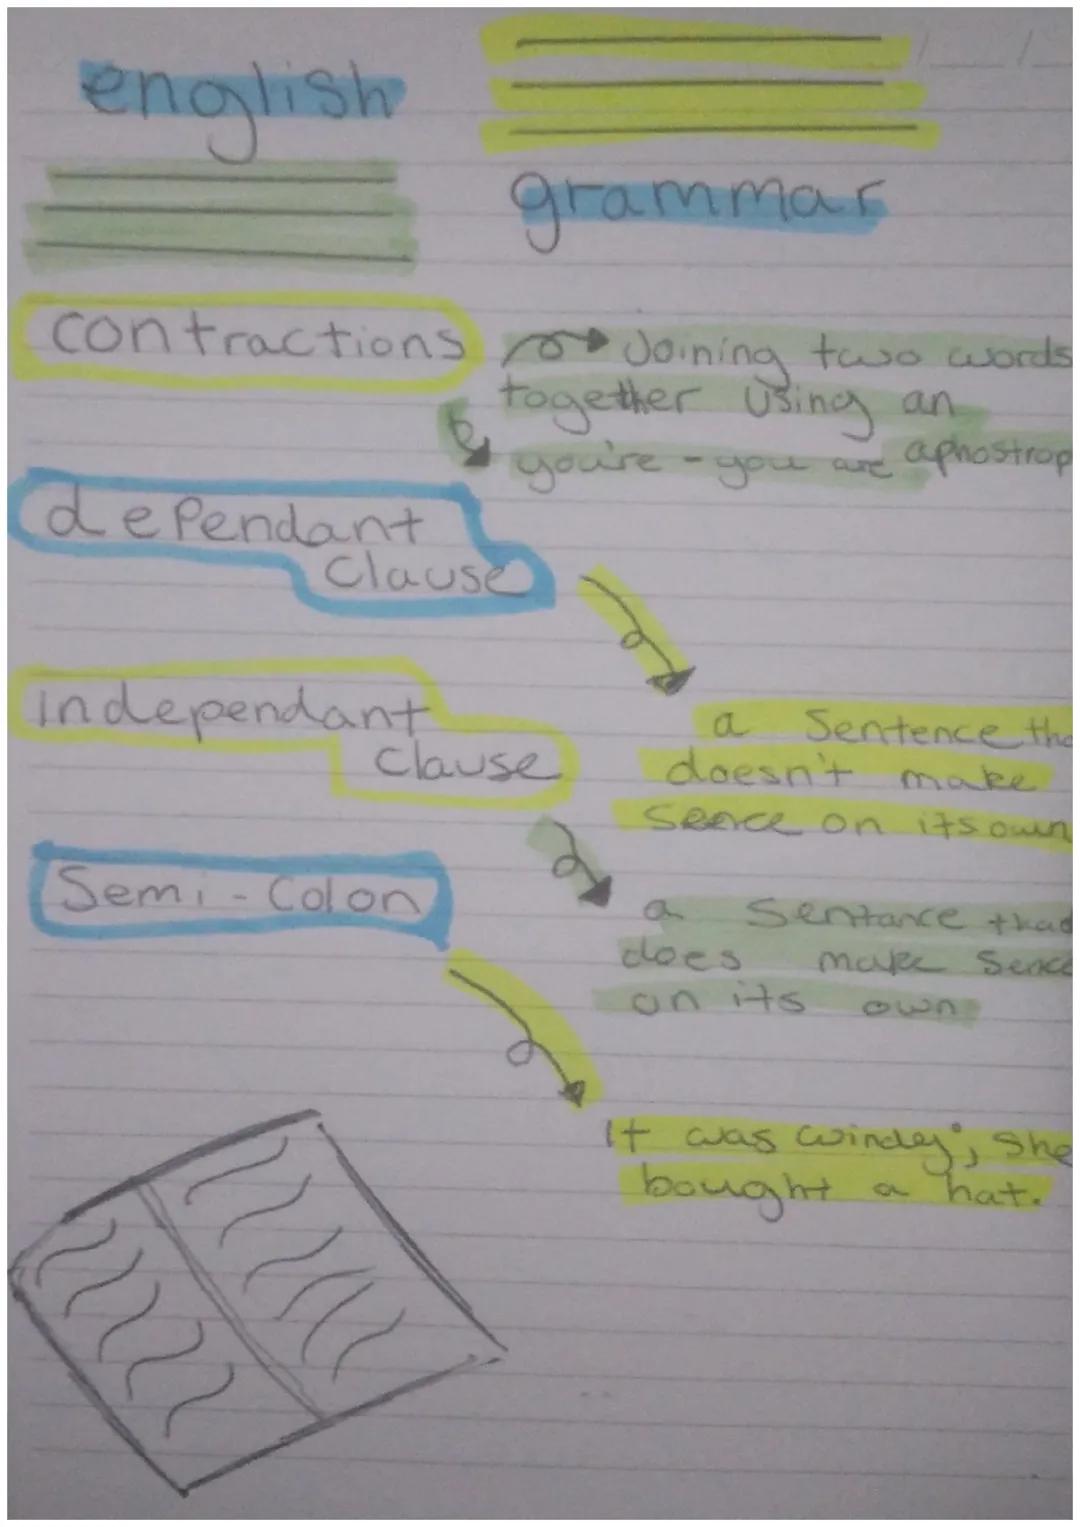 english
grammar
contractions
Joining two words
together using an
aphostrop
you're - you are
dependant
clause
independant
clause
a sentence tha
doesn't make
sence on its own
Semi-Colon
a sentance that
does make sence
on its own
It was windey; she
bought a hat.